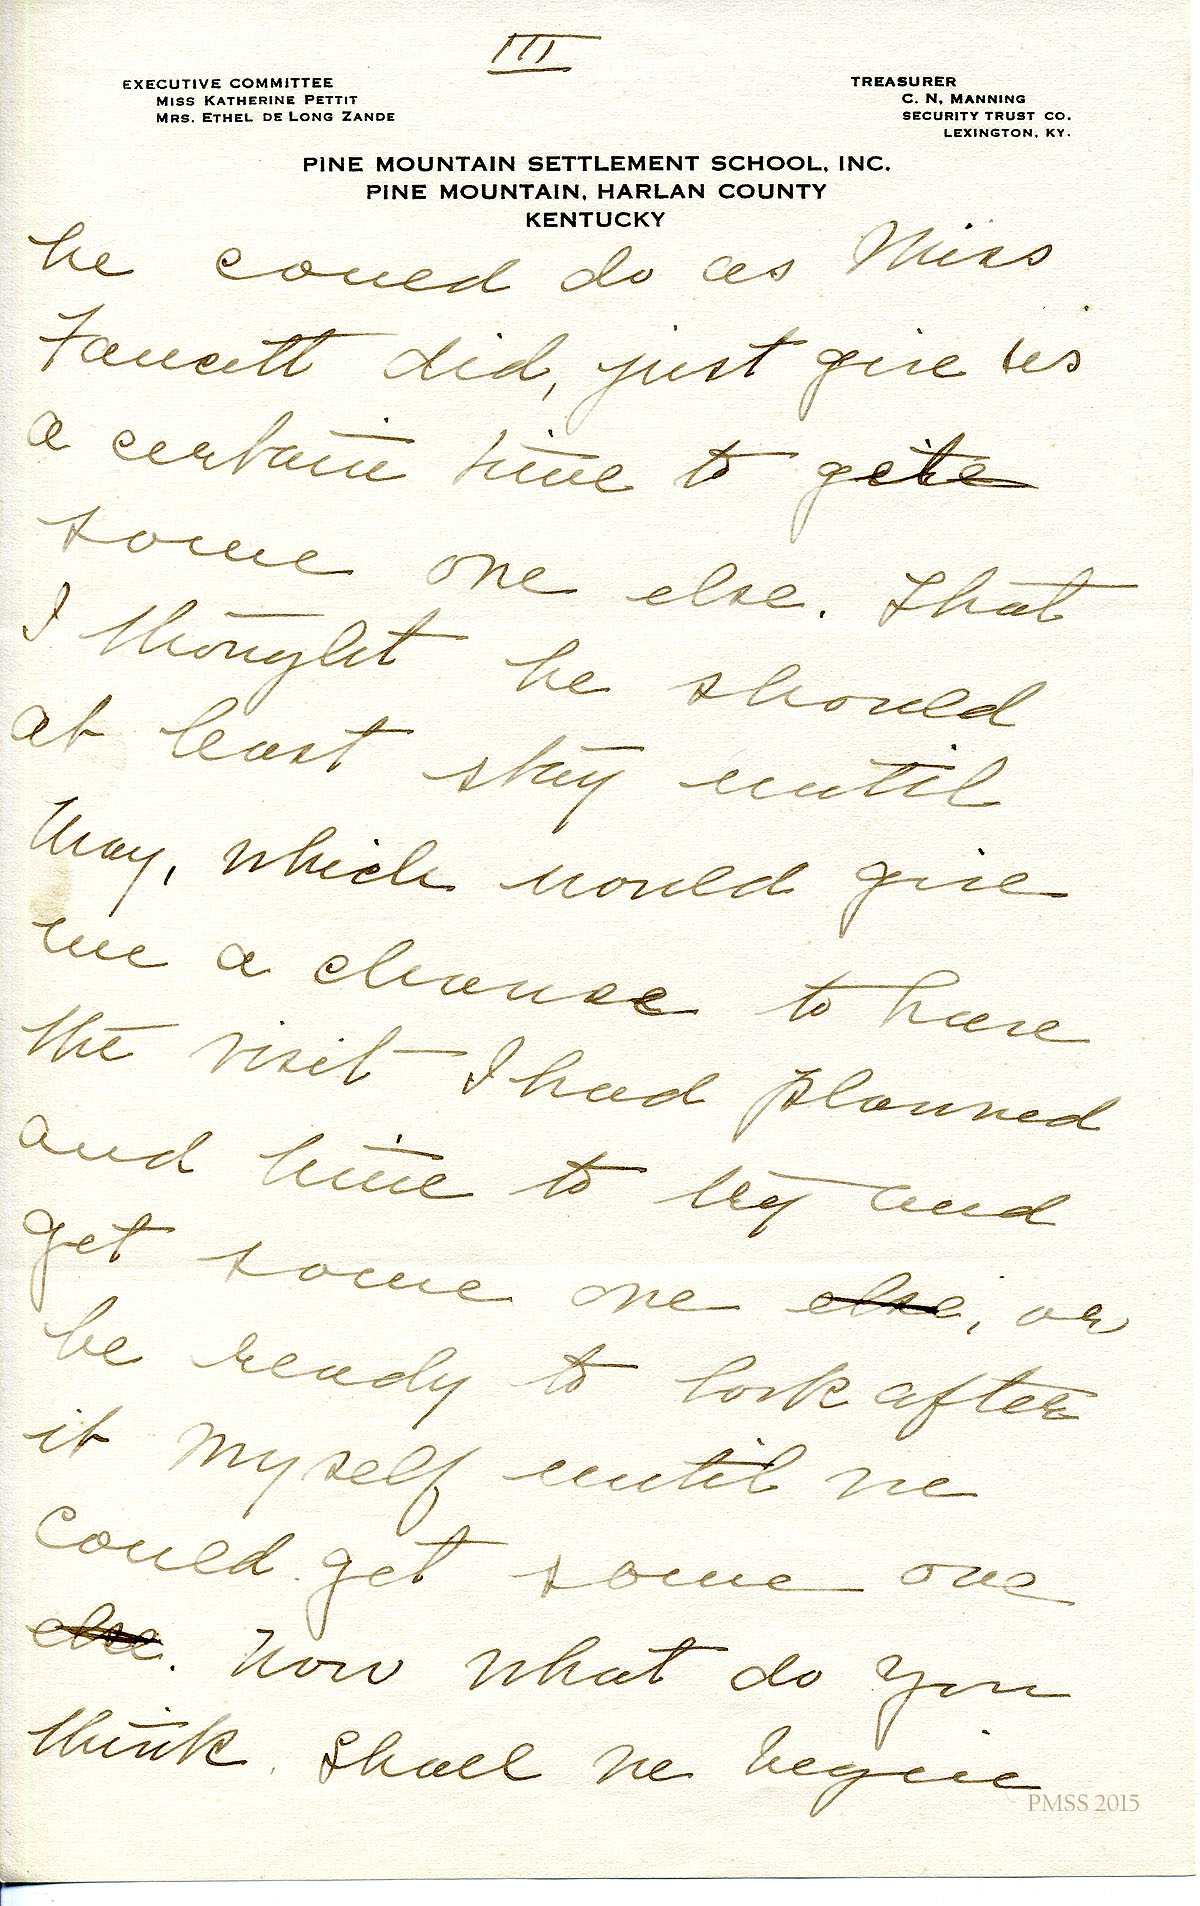 III
EXECUTIVE COMMITTEE
MISS KATHERINE PETTIT
MRS. ETHEL DE LONG ZANDE
TREASURER
C. N. MANNING
SECURITY TRUST CO.
LEXINGTON, KY.
PINE MOUNTAIN SETTLEMENT SCHOOL, INC.
PINE MOUNTAIN, HARLAN COUNTY
KENTUCKY
he could do as Miss
Faucett did, just give us
a certain time to
some one else. That
I thought he should
at least stay until
May, which would give
me a chance to have
the visit I had planned
and time to try and
get some one else, or
be ready to look after
it myself until we
could get some one
else. Now what do you
think. Shall we begin
PMSS 2015